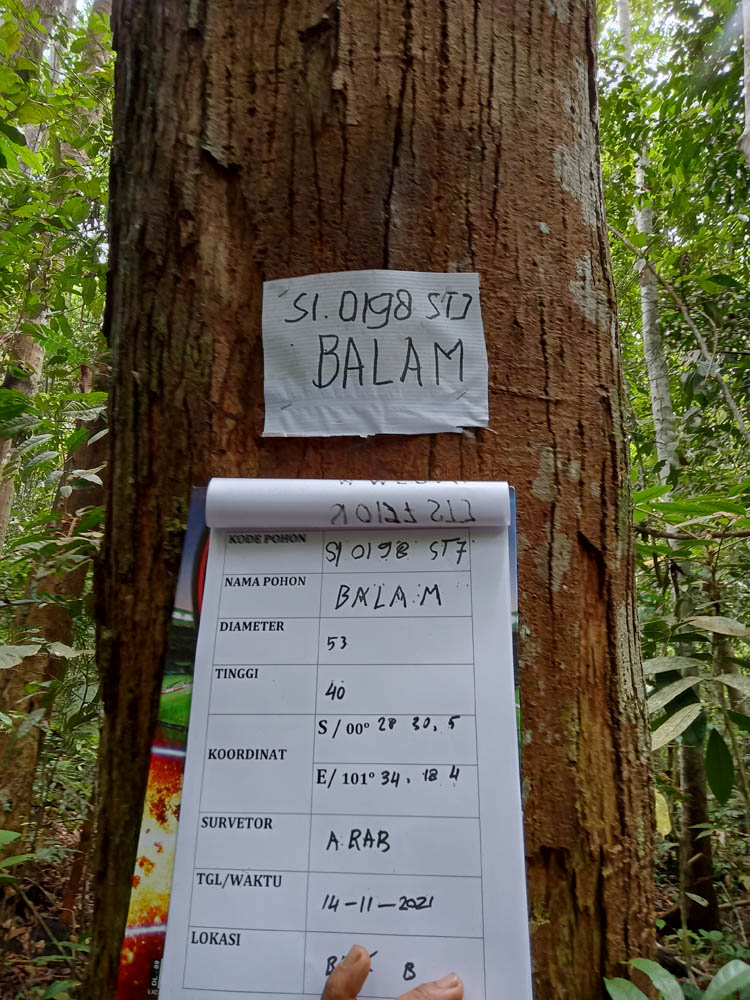 SI. 0198 ST7
BALAM
KODE POHON SI 0198 ST7
NAMA POHON BALAM
DIAMETER 53
TINGGI 40
KOORDINAT S / 00° 28 30, 5
E/ 101° 34, 18 4
SURVETOR A RAB
TGL/WAKTU 14-11-2021
LOKASI B